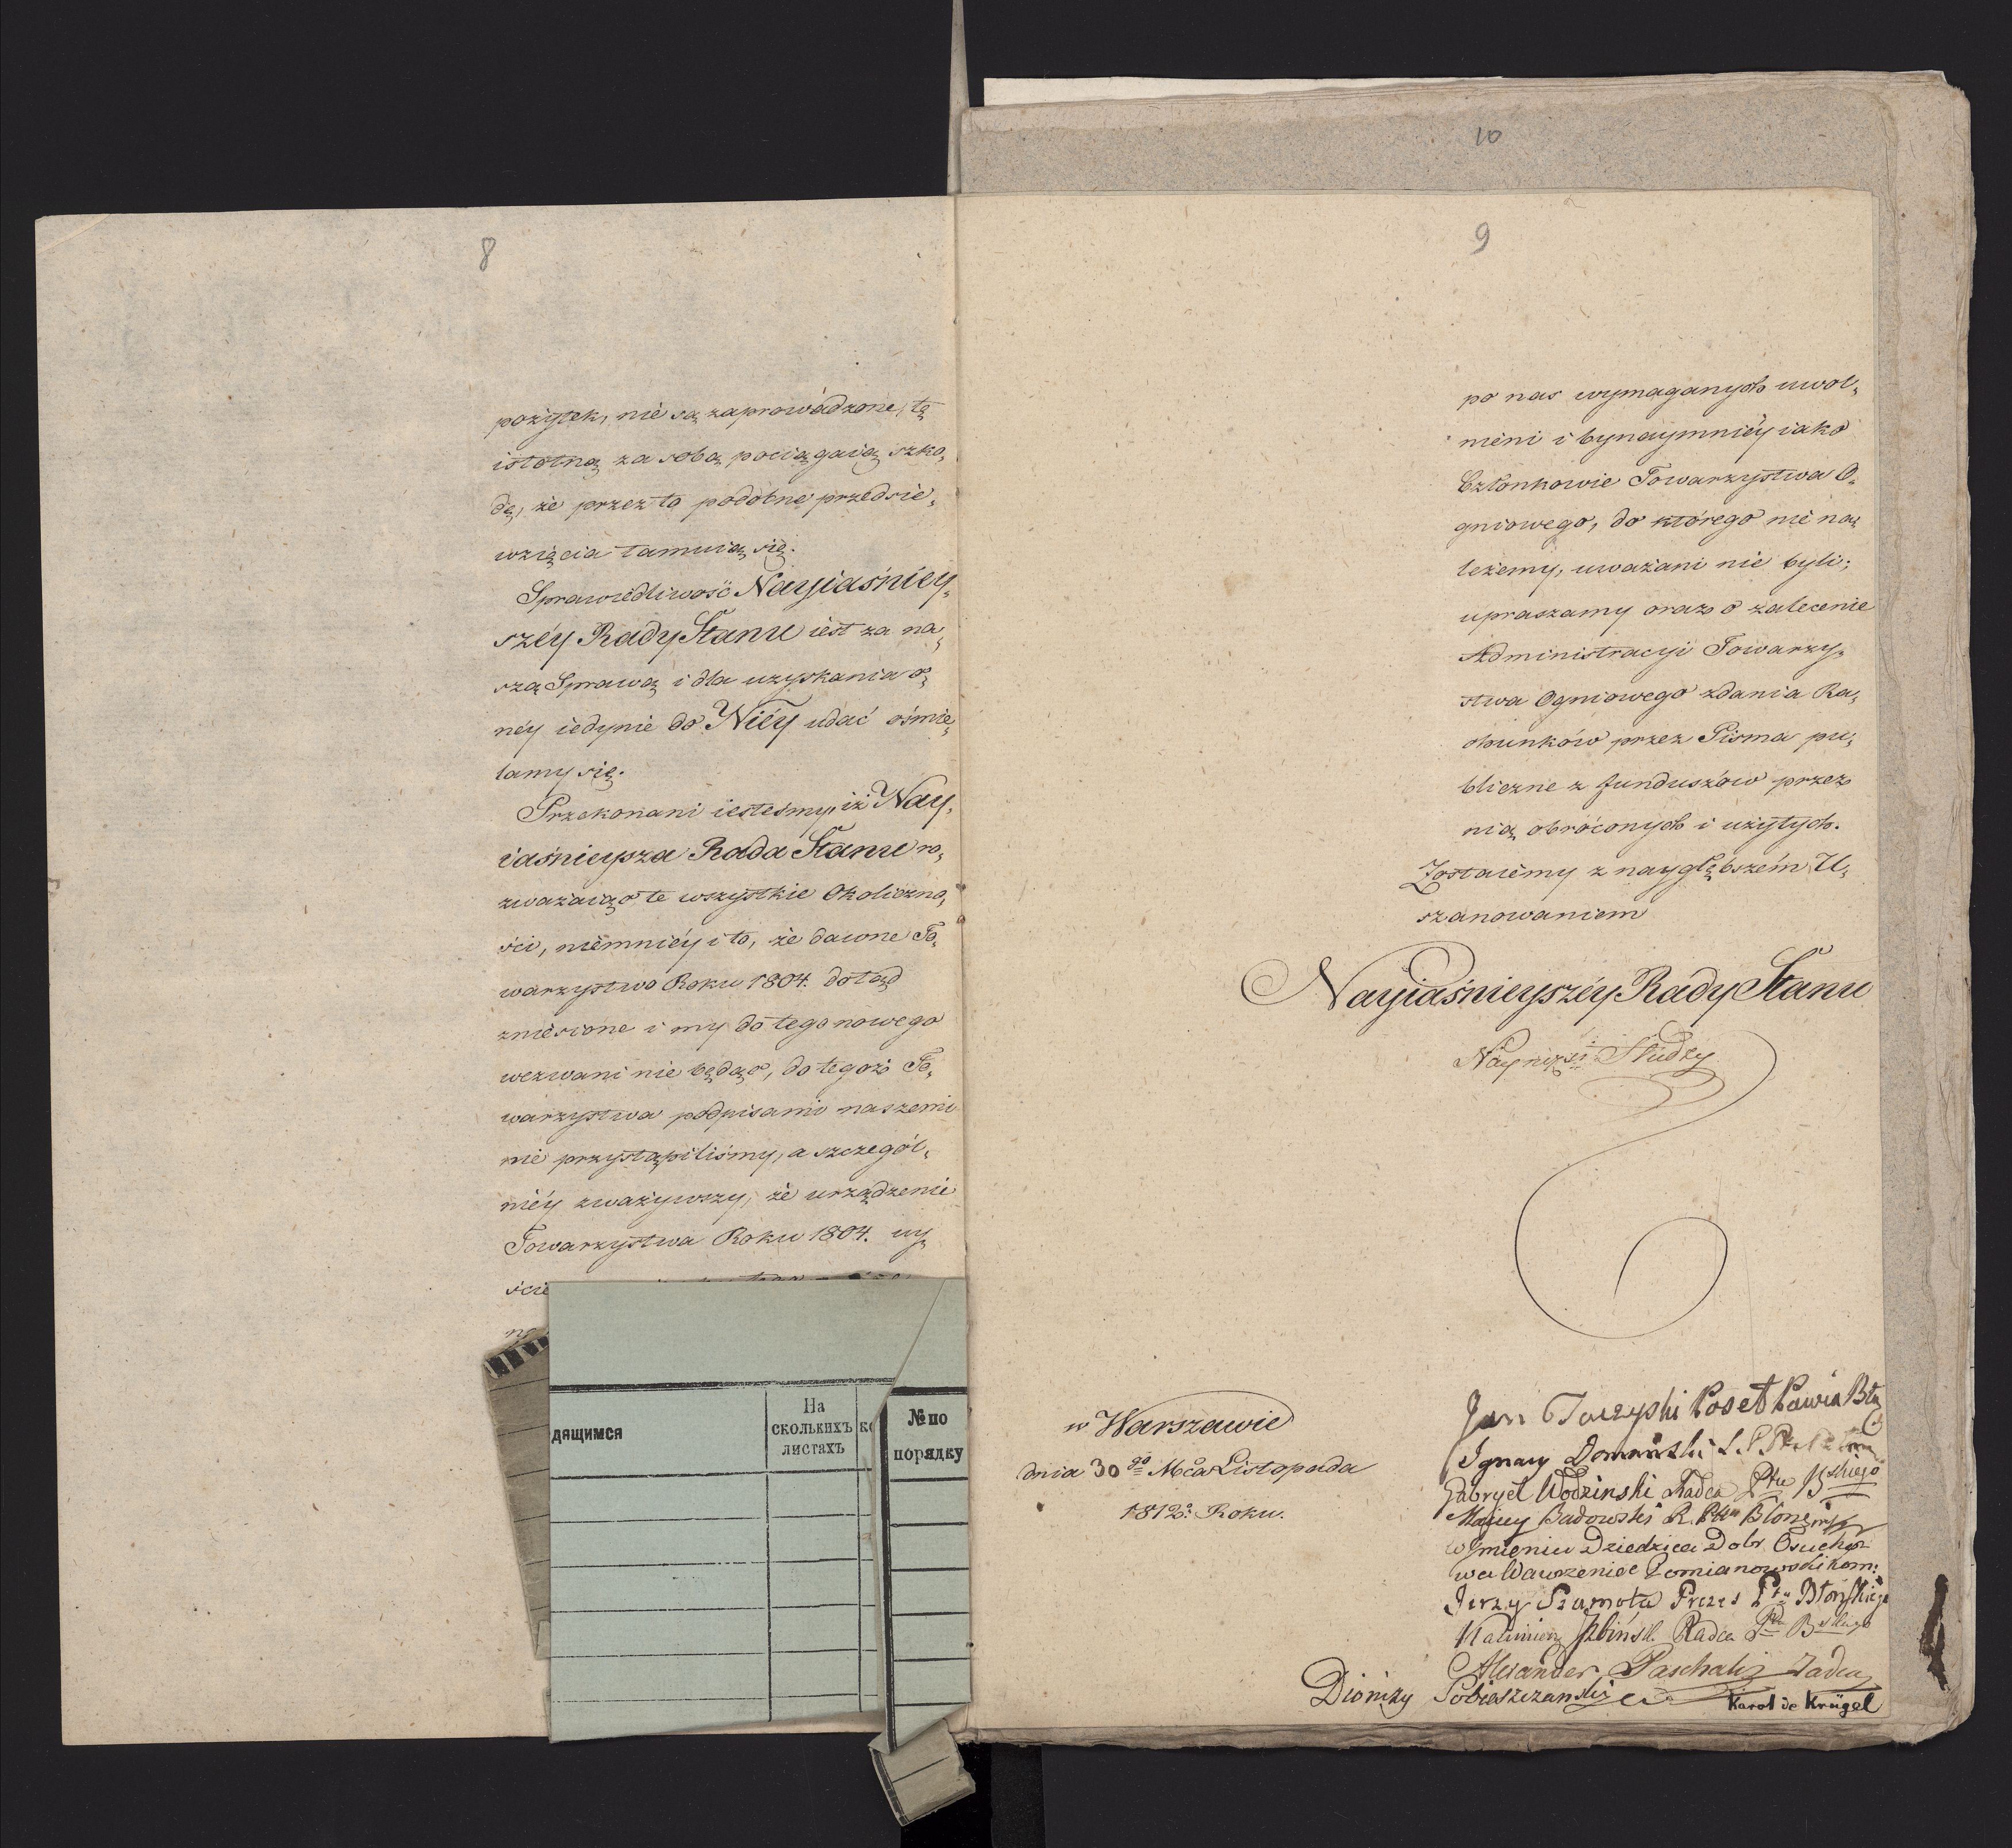 8
pożytek, nie są zaprowadzone, tę
istotną za sobą pociągaią szko„
dę, że przez to podobne przedsie„
wzięcia tamuią się.
Sprawiedliwość Nayiaśniey„
széy Rady Stanu iest za na„
szą Sprawą i dla uzyskania o„
néy iedynie do Niéy udać ośmie„
lamy się.
Przekonani iesteśmy, iż Nay„
iaśnieysza Rada Stanu ro„
zważaiąc te wszystkie Okoliczno„
ści, niemniéy i to, że dawne To„
warzystwo Roku 1804. dotąd
zniesione i my do tego nowego
wezwani nie będąc, do tegoż To„
warzystwa podpisami naszemi
nie przystąpiliśmy, a szczegól„
niéy zważywszy, że urządzenie
Towarzystwa Roku 1804. wy„
ście
дящимся
На
сколькихъ
листахъ
№ по
порядку
10
9
po nas wymaganych uwol„
nieni i bynaymniéy iako
Członkowie Towarzystwa O„
gniowego, do którego nie na„
leżemy, uważani nie byli;
upraszamy oraz o zalecenie
Administracyi Towarzy„
stwa Ogniowego zdania Ra„
chunków przez Pisma pu„
bliczne z funduszów przez
nią obróconych i użytych.
Zostaiemy z naygłębszém U„
szanowaniem
Nayiaśnieyszéy Rady Stanu
Nayniżsi Słudzy
w Warszawie
dnia 30go Mca Listopada
1812o Roku.
Jan Poseł Powia Bło
Ignacy
Gabryel Wodzinski Radca Ptu Bskiego
Maciey Badowski R. Ptu
w Imieniu Dziedzica Dobr Osucho
wa Wawrzeniec Pomianowski Kom:
Jerzy Szamota Prezes Ptu Błońskiego
Kazimierz Radca Ptu
Alexander Paschalis Radca
Dionizy Sobieszczanski
Karol de Krügel